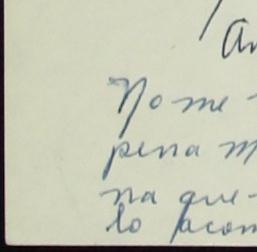 An
No me
pena m
na que-
lo acom